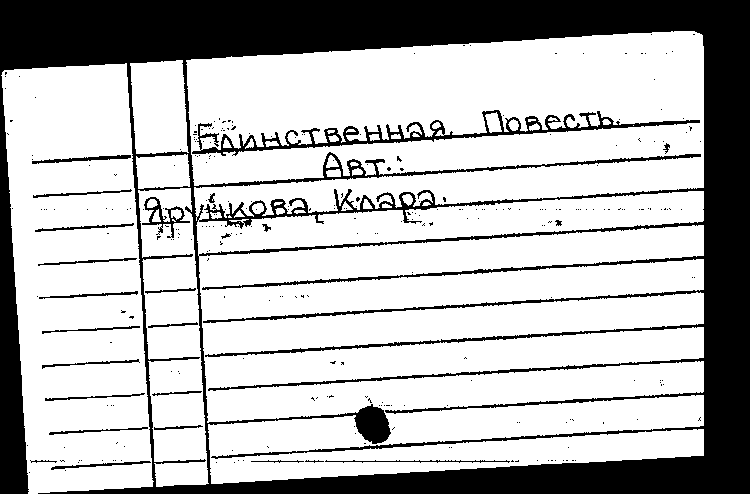 Единственная. Повесть.
Авт.:
Ярункова, Клара.